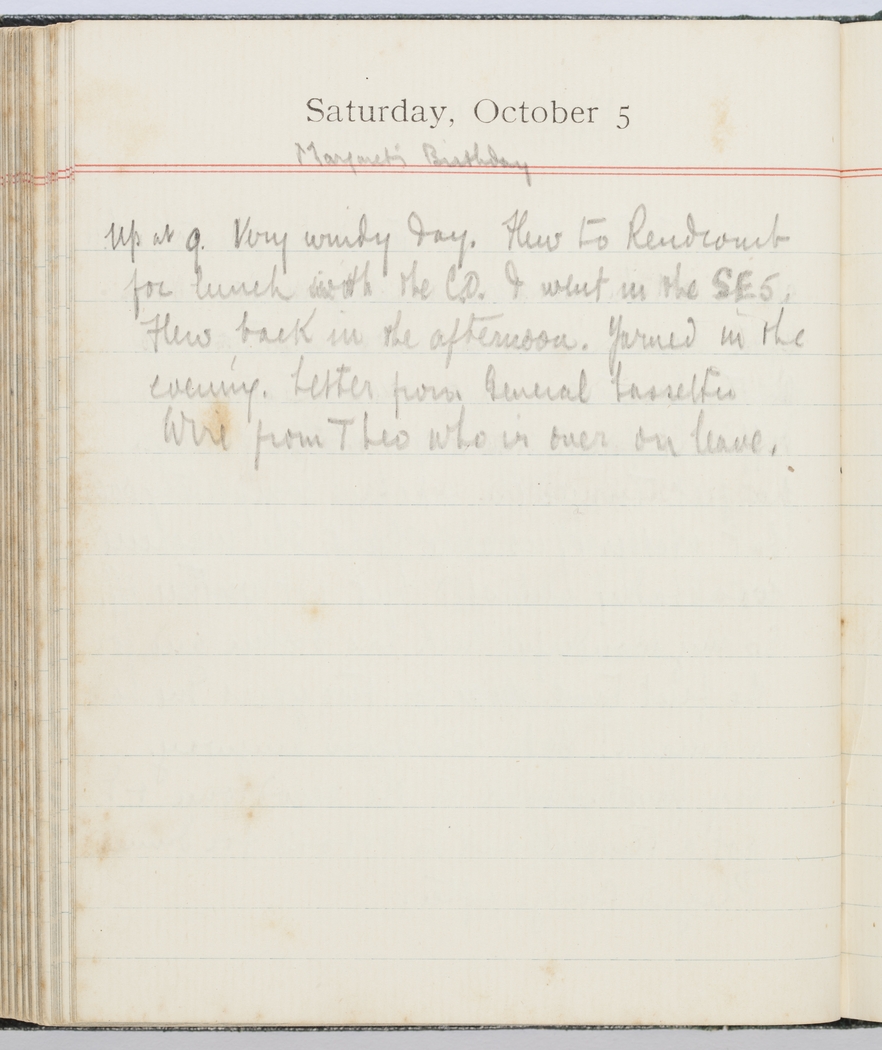 Saturday, October 5
Margaret's Birthday
Up at 9. Very windy day. Flew to Rendcomb
for lunch with the C.O. I went in the SE5.
Flew back in the afternoon. Yarned in the
evening. Letter from General Lassetter
Wire from Theo who is over on leave.